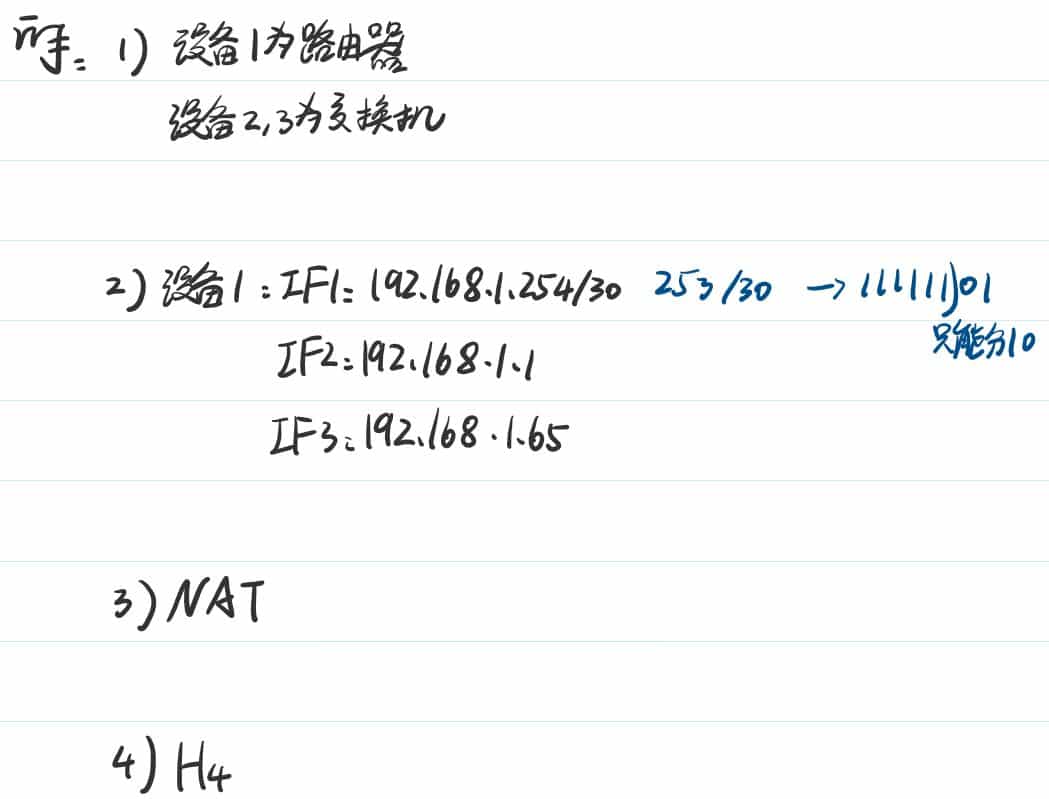 1) 设备1为路由器
设备2,3为交换机
2) 设备1: IF1: 192.168.1.254/30 253/30 → 111111)01
只能分10
IF2: 192.168.1.1
IF3: 192.168.1.65
3) NAT
4) H4